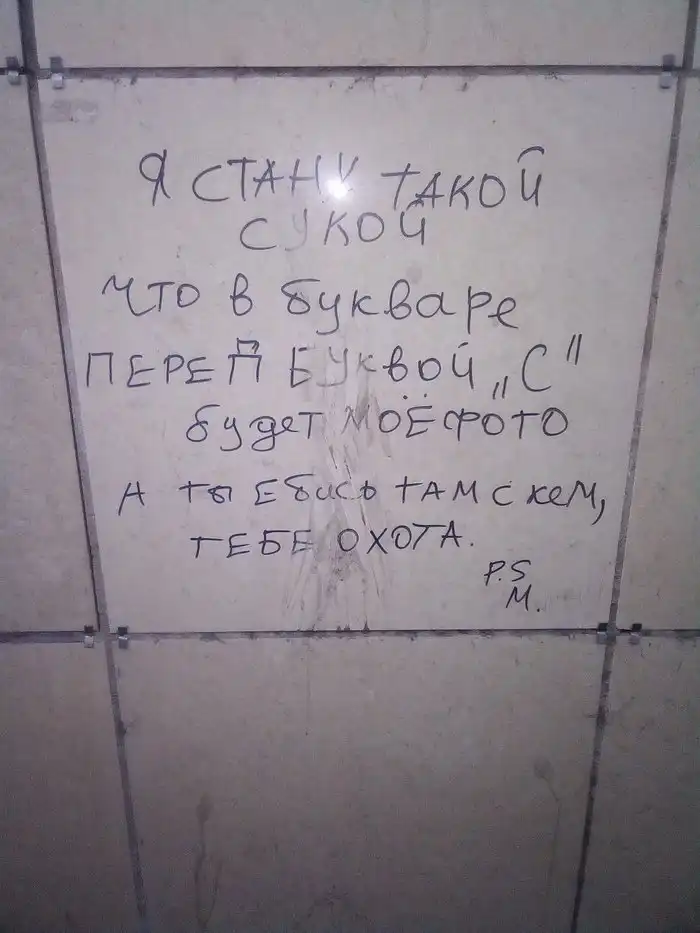 Я СТАНУ ТАКОЙ
СУКОЙ
ЧТО В букваре
ПЕРЕД БУКВОЙ „С"
будет МОЁ ФОТО
А ТЫ ЕбИСЬ ТАМ С КЕМ,
ТЕБЕ ОХОТА.
P.S
М.